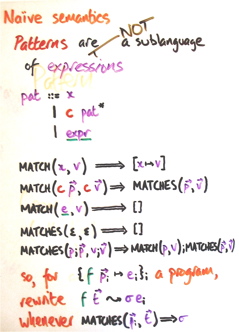 Naïve semantics
Patterns are NOT a sublanguage
of expressions
pat ::= x
| c pat*
| expr
MATCH(x, v) ⟹ [x ↦ v]
MATCH(c p⃗, c v⃗) ⟹ MATCHES(p⃗, v⃗)
MATCH(e, v) ⟹ []
MATCHES(ε, ε) ⟹ []
MATCHES(p;p⃗, v;v⃗) ⟹ MATCH(p,v);MATCHES(p⃗,v⃗)
so, for {f p⃗ᵢ ↦ eᵢ}ᵢ a program,
rewrite f t⃗ ⤳ σeᵢ
whenever MATCHES(p⃗ᵢ, t⃗) ⟹ σ